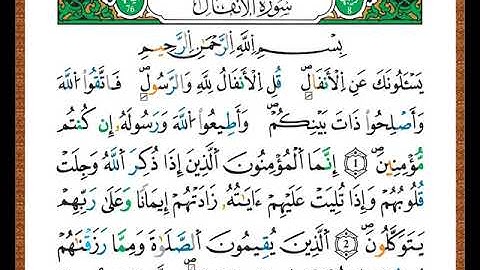 سُورَةُ الأَنْفَالِ
بِسْمِ اللَّهِ الرَّحْمَٰنِ الرَّحِيمِ
يَسْـَٔلُونَكَ عَنِ ٱلْأَنفَالِ ۖ قُلِ ٱلْأَنفَالُ لِلَّهِ وَٱلرَّسُولِ ۖ فَٱتَّقُوا۟ ٱللَّهَ
وَأَصْلِحُوا۟ ذَاتَ بَيْنِكُمْ ۖ وَأَطِيعُوا۟ ٱللَّهَ وَرَسُولَهُۥٓ إِن كُنتُم
مُّؤْمِنِينَ ۝١ إِنَّمَا ٱلْمُؤْمِنُونَ ٱلَّذِينَ إِذَا ذُكِرَ ٱللَّهُ وَجِلَتْ
قُلُوبُهُمْ وَإِذَا تُلِيَتْ عَلَيْهِمْ ءَايَٰتُهُۥ زَادَتْهُمْ إِيمَٰنًا وَعَلَىٰ رَبِّهِمْ
يَتَوَكَّلُونَ ۝٢ ٱلَّذِينَ يُقِيمُونَ ٱلصَّلَوٰةَ وَمِمَّا رَزَقْنَٰهُمْ